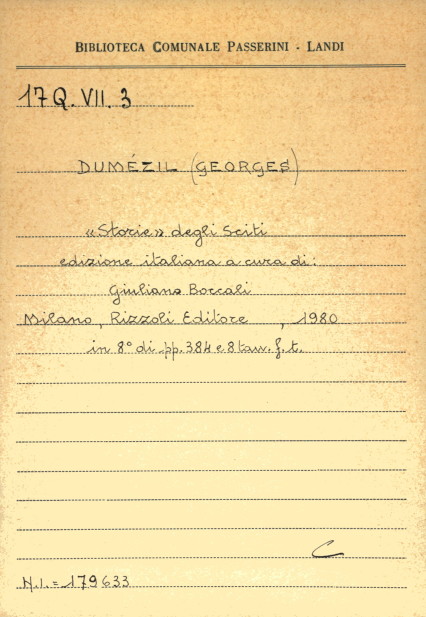 BIBLIOTECA COMUNALE PASSERINI - LANDI
17 Q. VII. 3
DUMÉZIL (GEORGES)
«Storie» degli Sciti
edizione italiana a cura di:
Giuliano Boccali
Milano, Rizzoli Editore , 1980
in 8° di pp. 384 e 8 tav. f. t.
C
N.I. = 179633